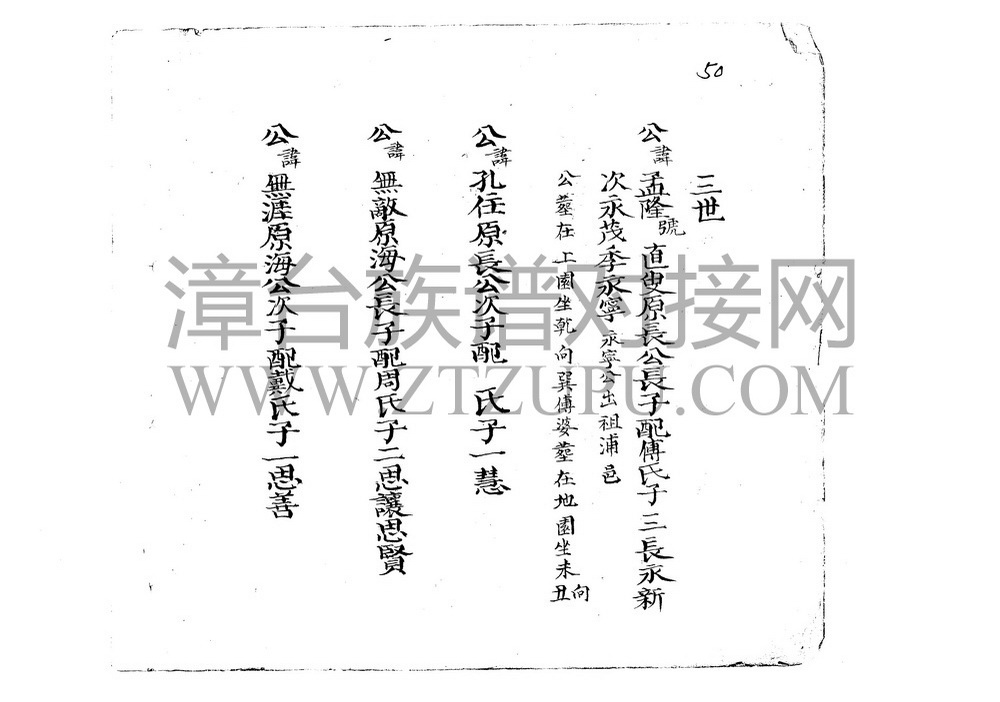 50
三世
公諱孟隆號直叟原長公長子配傅氏子三長永新
次永茂季永寧永寧公出祖浦邑
公墓在上園坐乾向巽傅婆墓在地園坐未向丑
公諱孔任原長公次子配 氏子一慧
公諱無敵原海公長子配周氏子二思讓思賢
公諱無涯原海公次子配戴氏子一思善
漳台族谱对接网
WWW.ZTZUPU.COM